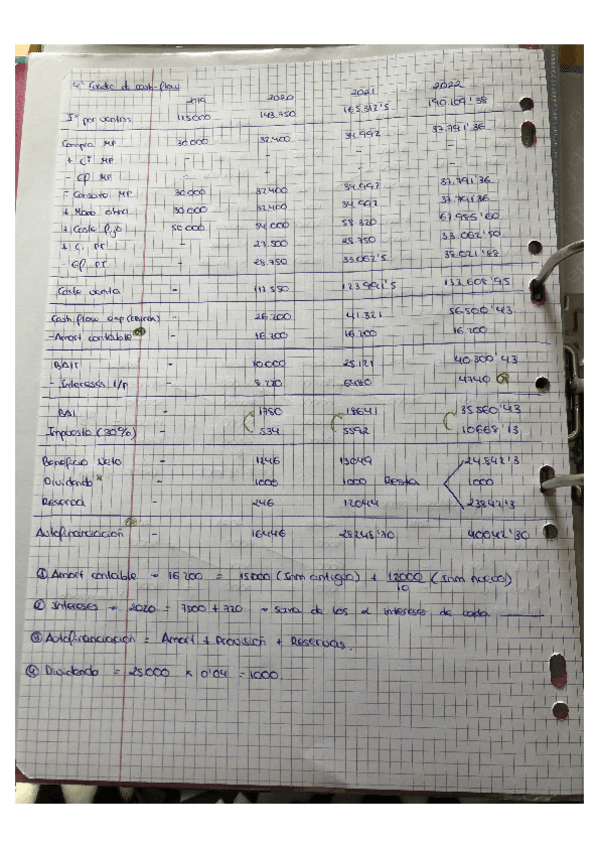 4º Cuadro de cash-flow
2019 2020 2021 2022
Iº por ventas 115000 143.750 165.312'5 190.109'38
Compra MP 30000 32.400 34.992 37.791'36
+ Ci MP - - - -
- Ef MP - - - -
= Consumo MP 30000 32400 34.992 37.791'36
+ Mano obra 30000 32.400 34.992 37.791'36
+ Coste fijo 50000 54000 58.320 62.985'60
+ Ci PT - 27.500 28.750 33.062'50
- Ef PT - 28.750 33.062'5 38.021'88
Coste venta - 117.550 123.991'5 133.608'95
Cash flow exp - 26.200 41.321 56.500'43
- Amort contable - 16.200 16.200 16.200
BAIT - 10000 25.121 40.300'43
- Intereses l/p - 8.220 6480 4740
BAI - 1780 18641 35560'43
Impuesto (30%) - 534 5592 10668'13
Beneficio Neto - 1246 13049 24.892'3
Dividendo * - 1000 1000 Resta 1000
Reserva - 246 12044 23892'3
Autofinanciación - 16446 28248'70 40042'30
① Amort contable = 16200 = 15000 (Inm antiguo) + 12000/10 (Inm nuevo)
② Intereses = 2020 = 7500 + 720 = suma de los 2 intereses de cada
③ Autofinanciación = Amort + Provisión + Reservas.
④ Dividendo = 25000 × 0'04 = 1000.